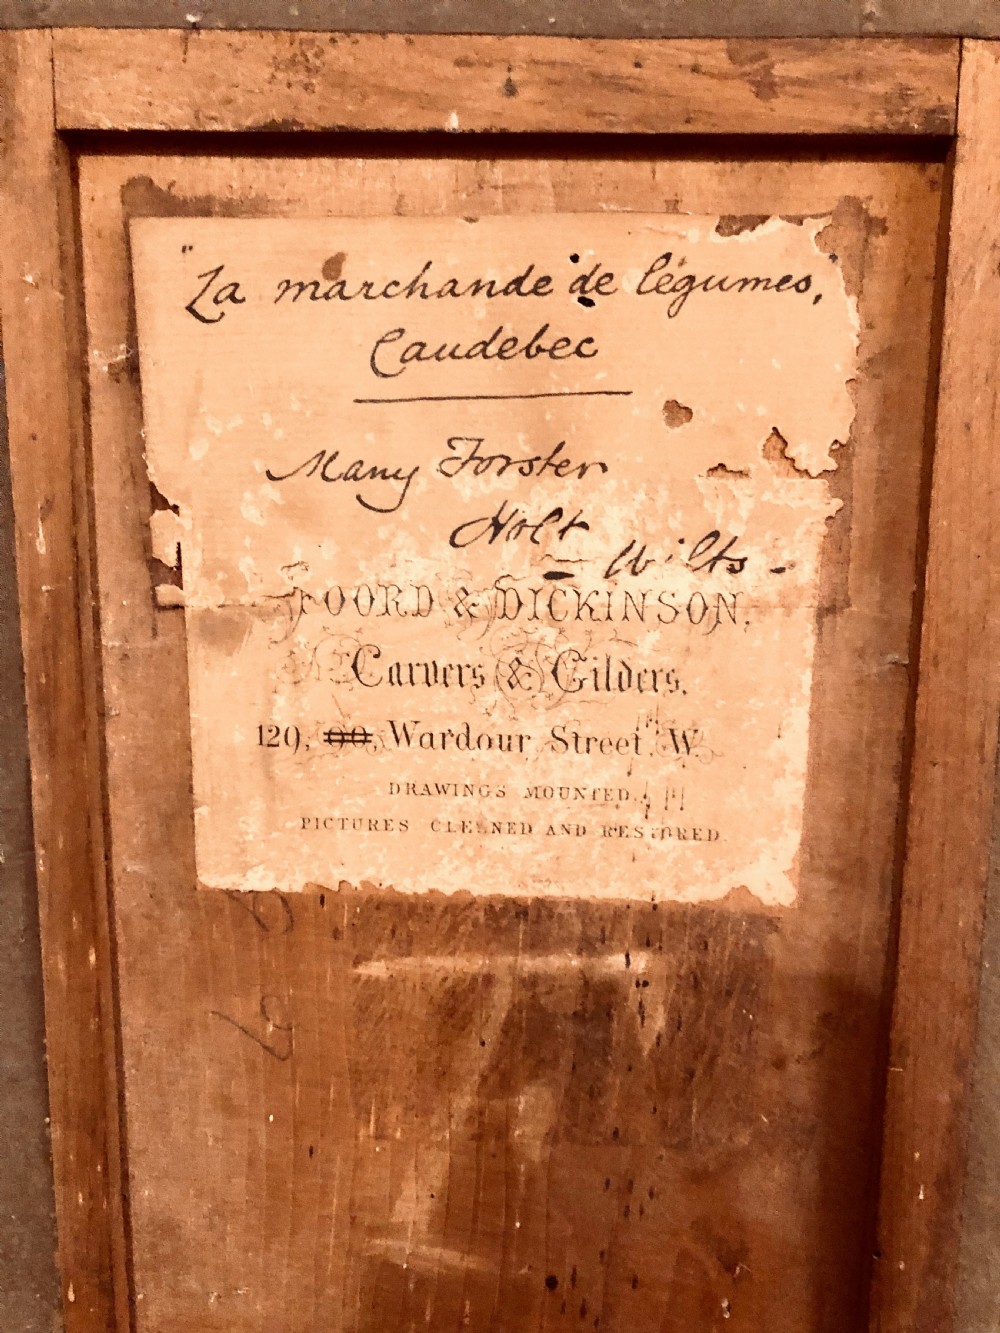 "La marchande de légumes,"
Caudebec
Mary Forster
Holt
Wilts -
FOORD & DICKINSON,
Carvers & Gilders,
129, 90, Wardour Street, W.
DRAWINGS MOUNTED,
PICTURES CLEANED AND RESTORED